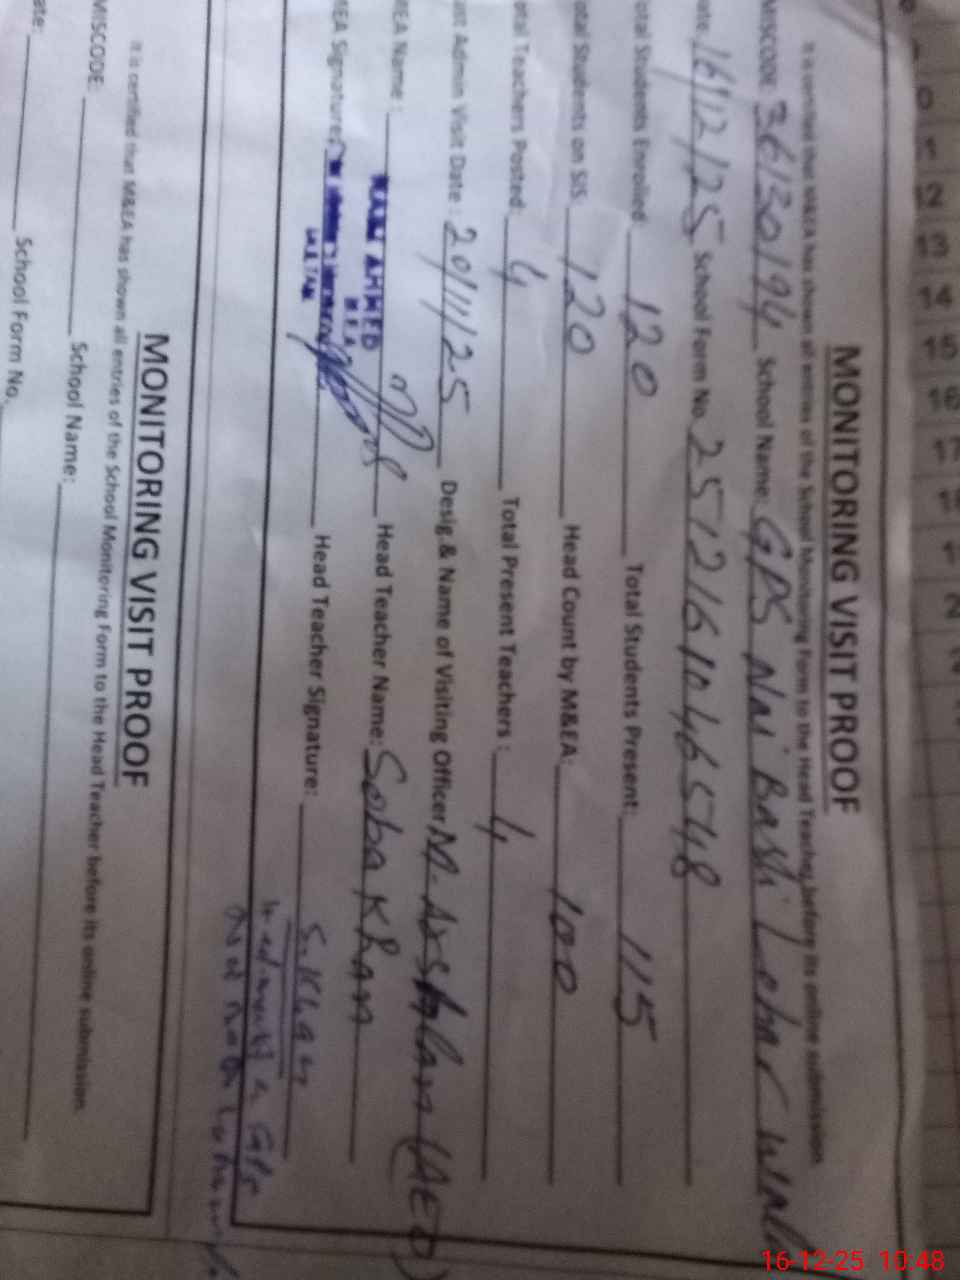 MONITORING VISIT PROOF
It is certified that M&EA has shown all entries of the School Monitering Form to the Head Teacher before its online submission.
MISCODE 36130194 School Name: GPS Nai Basti Lohar wala
ate: 16/12/25 School Form No. 2512161046548
otal Students Enrolled: 120 Total Students Present: 115
otal Students on SIS: 120 Head Count by M&EA: 100
otal Teachers Posted: 4 Total Present Teachers : 4
ast Admin Visit Date : 20/11/25 Desig & Name of Visiting Officer M. Arsahlan (AEO)
MEA Name : AHMED Head Teacher Name: Saba Khan
M.E.A
MEA Signature: Head Teacher Signature: S.Khan
MONITORING VISIT PROOF
It is certified that M&EA has shown all entries of the School Monitering Form to the Head Teacher before its online submission.
MISCODE: School Name:
ate: School Form No.
0
1
12
13
14
15
16
17
16-12-25 10:48